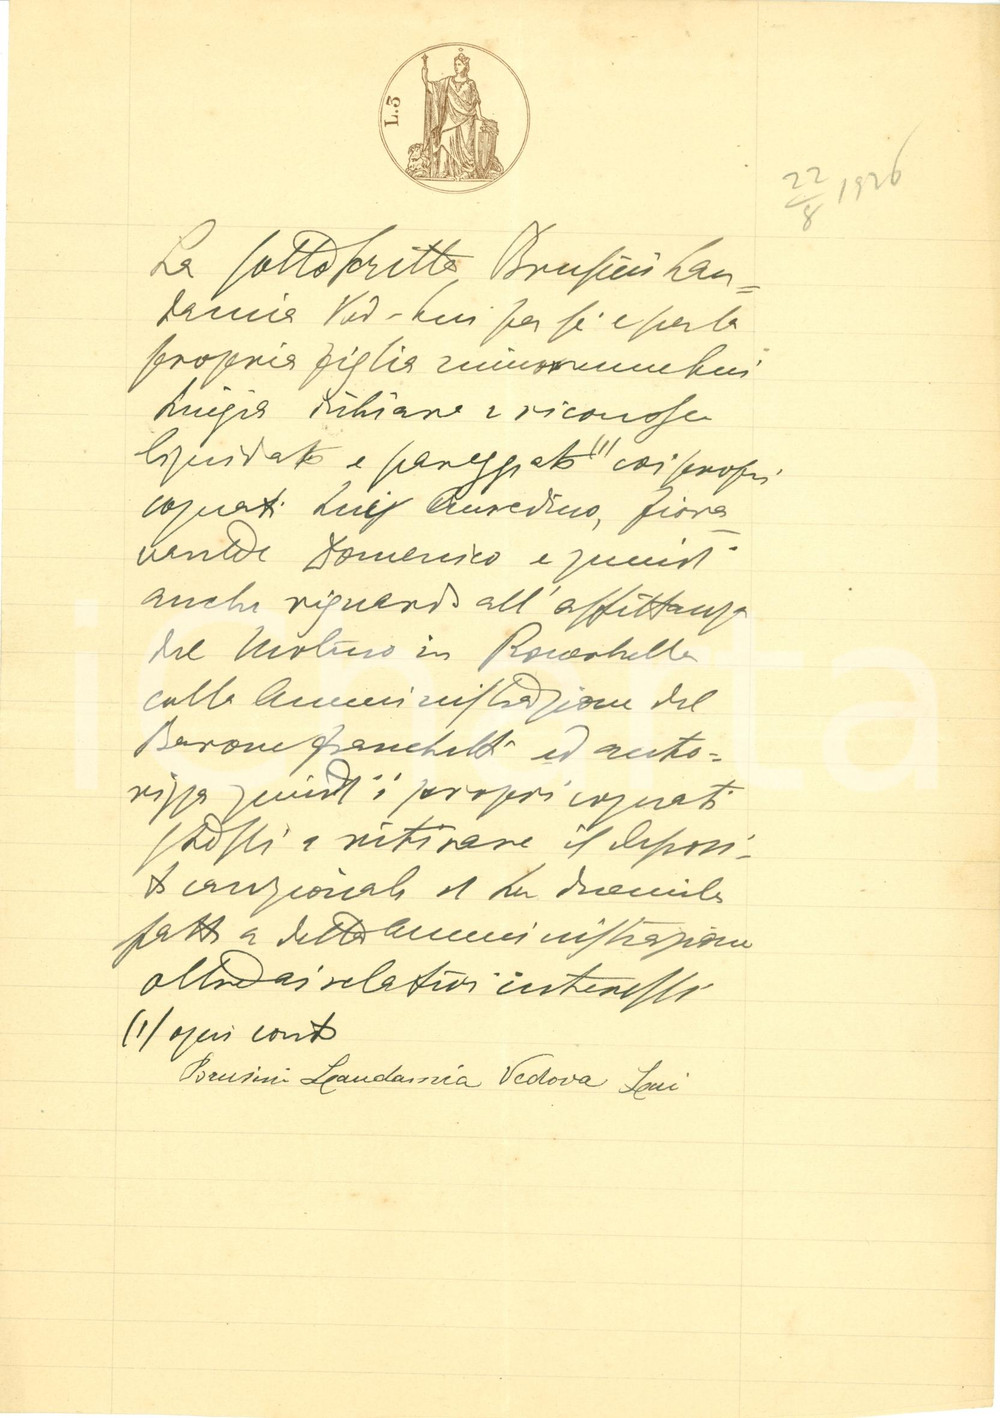 L.3
22/8 1926
La sottoscritta Brusini Lau=
damia Ved. Lui per sé e per la
propria figlia minorenne Lui
Luigia dichiara e riconosce
liquidato e pareggiato (1) coi propri
cognati Luigi Amredino, Fiora
vante Domenico e quindi
anche riguardo all'affittanza
del Molino in Roverbella
colla Amministrazione del
Barone Franchetti ed auto=
rizza quindi i propri cognati
stessi a ritirare il deposi-
to cauzionale di Lire duemila
fatto a detta Amministrazione
oltre ai relativi interessi
(1) ogni conto
Brusini Laudamia Vedova Lui